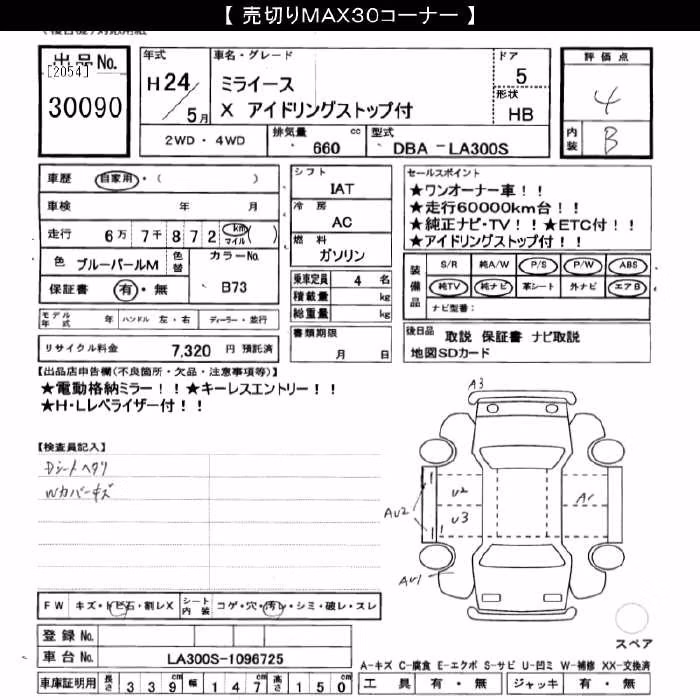 【 売切りMAX30コーナー 】
出品No.
[2054]
30090
年式
H24
5月
車名・グレード
ミライース
X アイドリングストップ付
ドア
5
形状
HB
評価点
4
内装
B
2WD・4WD
排気量
660 cc
型式
DBA －LA300S
車歴 自家用・( )
車検 年 月
走行 6万 7千 8 7 2 km マイル ( )
色 ブルーパールM 色替
カラーNo.
B73
保証書 有・無
シフト
IAT
冷房
AC
燃料
ガソリン
乗車定員 4 名
積載量 kg
総重量 kg
書類期限
月 日
セールスポイント
★ワンオーナー車！！
★走行60000km台！！
★純正ナビ・TV！！★ETC付！！
★アイドリングストップ付！！
装備品
S/R 純A/W P/S P/W ABS
純TV 純ナビ 革シート 外ナビ エアB
ナビ型番：
モデル年式 年 ハンドル 左・右 ディーラー・並行
リサイクル料金 7,320 円 預託済
後日品 取説 保証書 ナビ取説
地図SDカード
【出品店申告欄(不良箇所・欠品・注意事項等)】
★電動格納ミラー！！★キーレスエントリー！！
★H・Lレベライザー付！！
【検査員記入】
Dシートヘタリ
Wカバーキズ
A3
U2
U3
AU2
A1
AU1
スペア
FW キズ・トビ石・割レX
シート内装 コゲ・穴・汚レ・シミ・破レ・スレ
登録No.
車台No. LA300S-1096725
車庫証明用 長さ 339cm 幅 147cm 高さ 150cm
A-キズ C-腐食 E-エクボ S-サビ U-凹ミ W-補修 XX-交換済
工具 有・無 ジャッキ 有・無